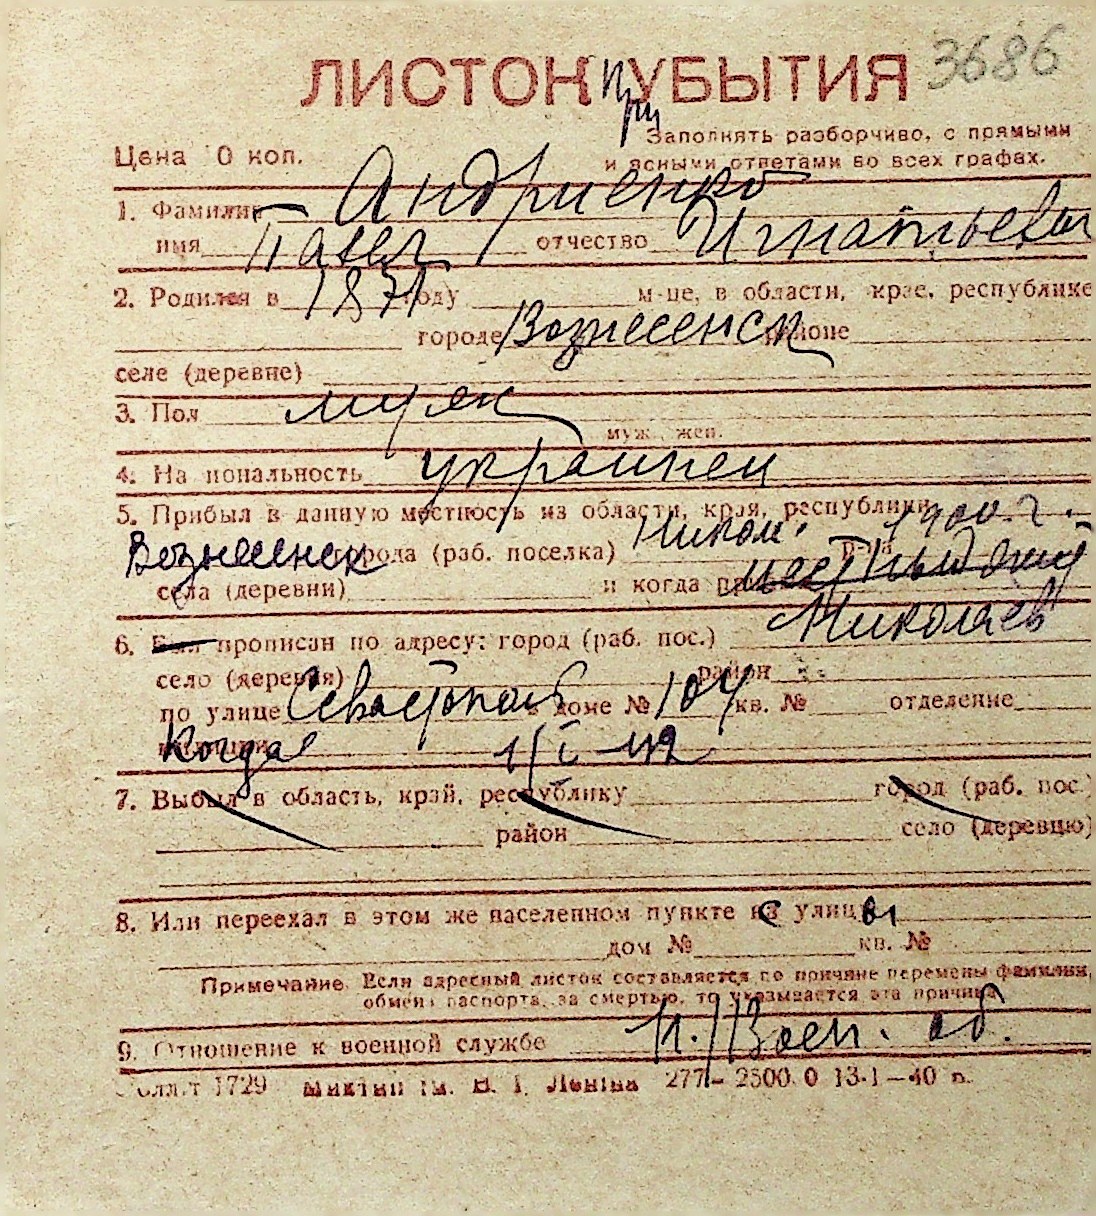 3686
ЛИСТОК При УБЫТИЯ
Заполнять разборчиво, с прямыми
Цена 0 коп. и ясными ответами во всех графах.
1. Фамилия Андриенко
имя Павел отчество Игнатьевич
2. Родился в 1871 году м-це, в области, крае, республике
городе Вознесенск районе
селе (деревне)
3. Пол муж
муж., жен.
4. На иональность украинец
5. Прибыл в данную местность из области, края, республики
Вознесенск города (раб. поселка) Никол. р-на 1900 г.
села (деревни) и когда
6. Был прописан по адресу: город (раб. пос.) Николаев
село (деревня) район
по улице Севастополь в доме № 104 кв. № отделение
милиции Когда 1/I-42
7. Выбыл в область, край, республику город (раб. пос.)
район село (деревню)
8. Или переехал в этом же населенном пункте с улицы
дом № кв. №
Примечание. Если адресный листок составляется по причине перемены фамилии,
обмена паспорта, за смертью, то указывается эта причина
9. Отношение к военной службе Н./Воен. об.
1729 им. В. І. Леніна 277– 2500.0 13·1–40 р.